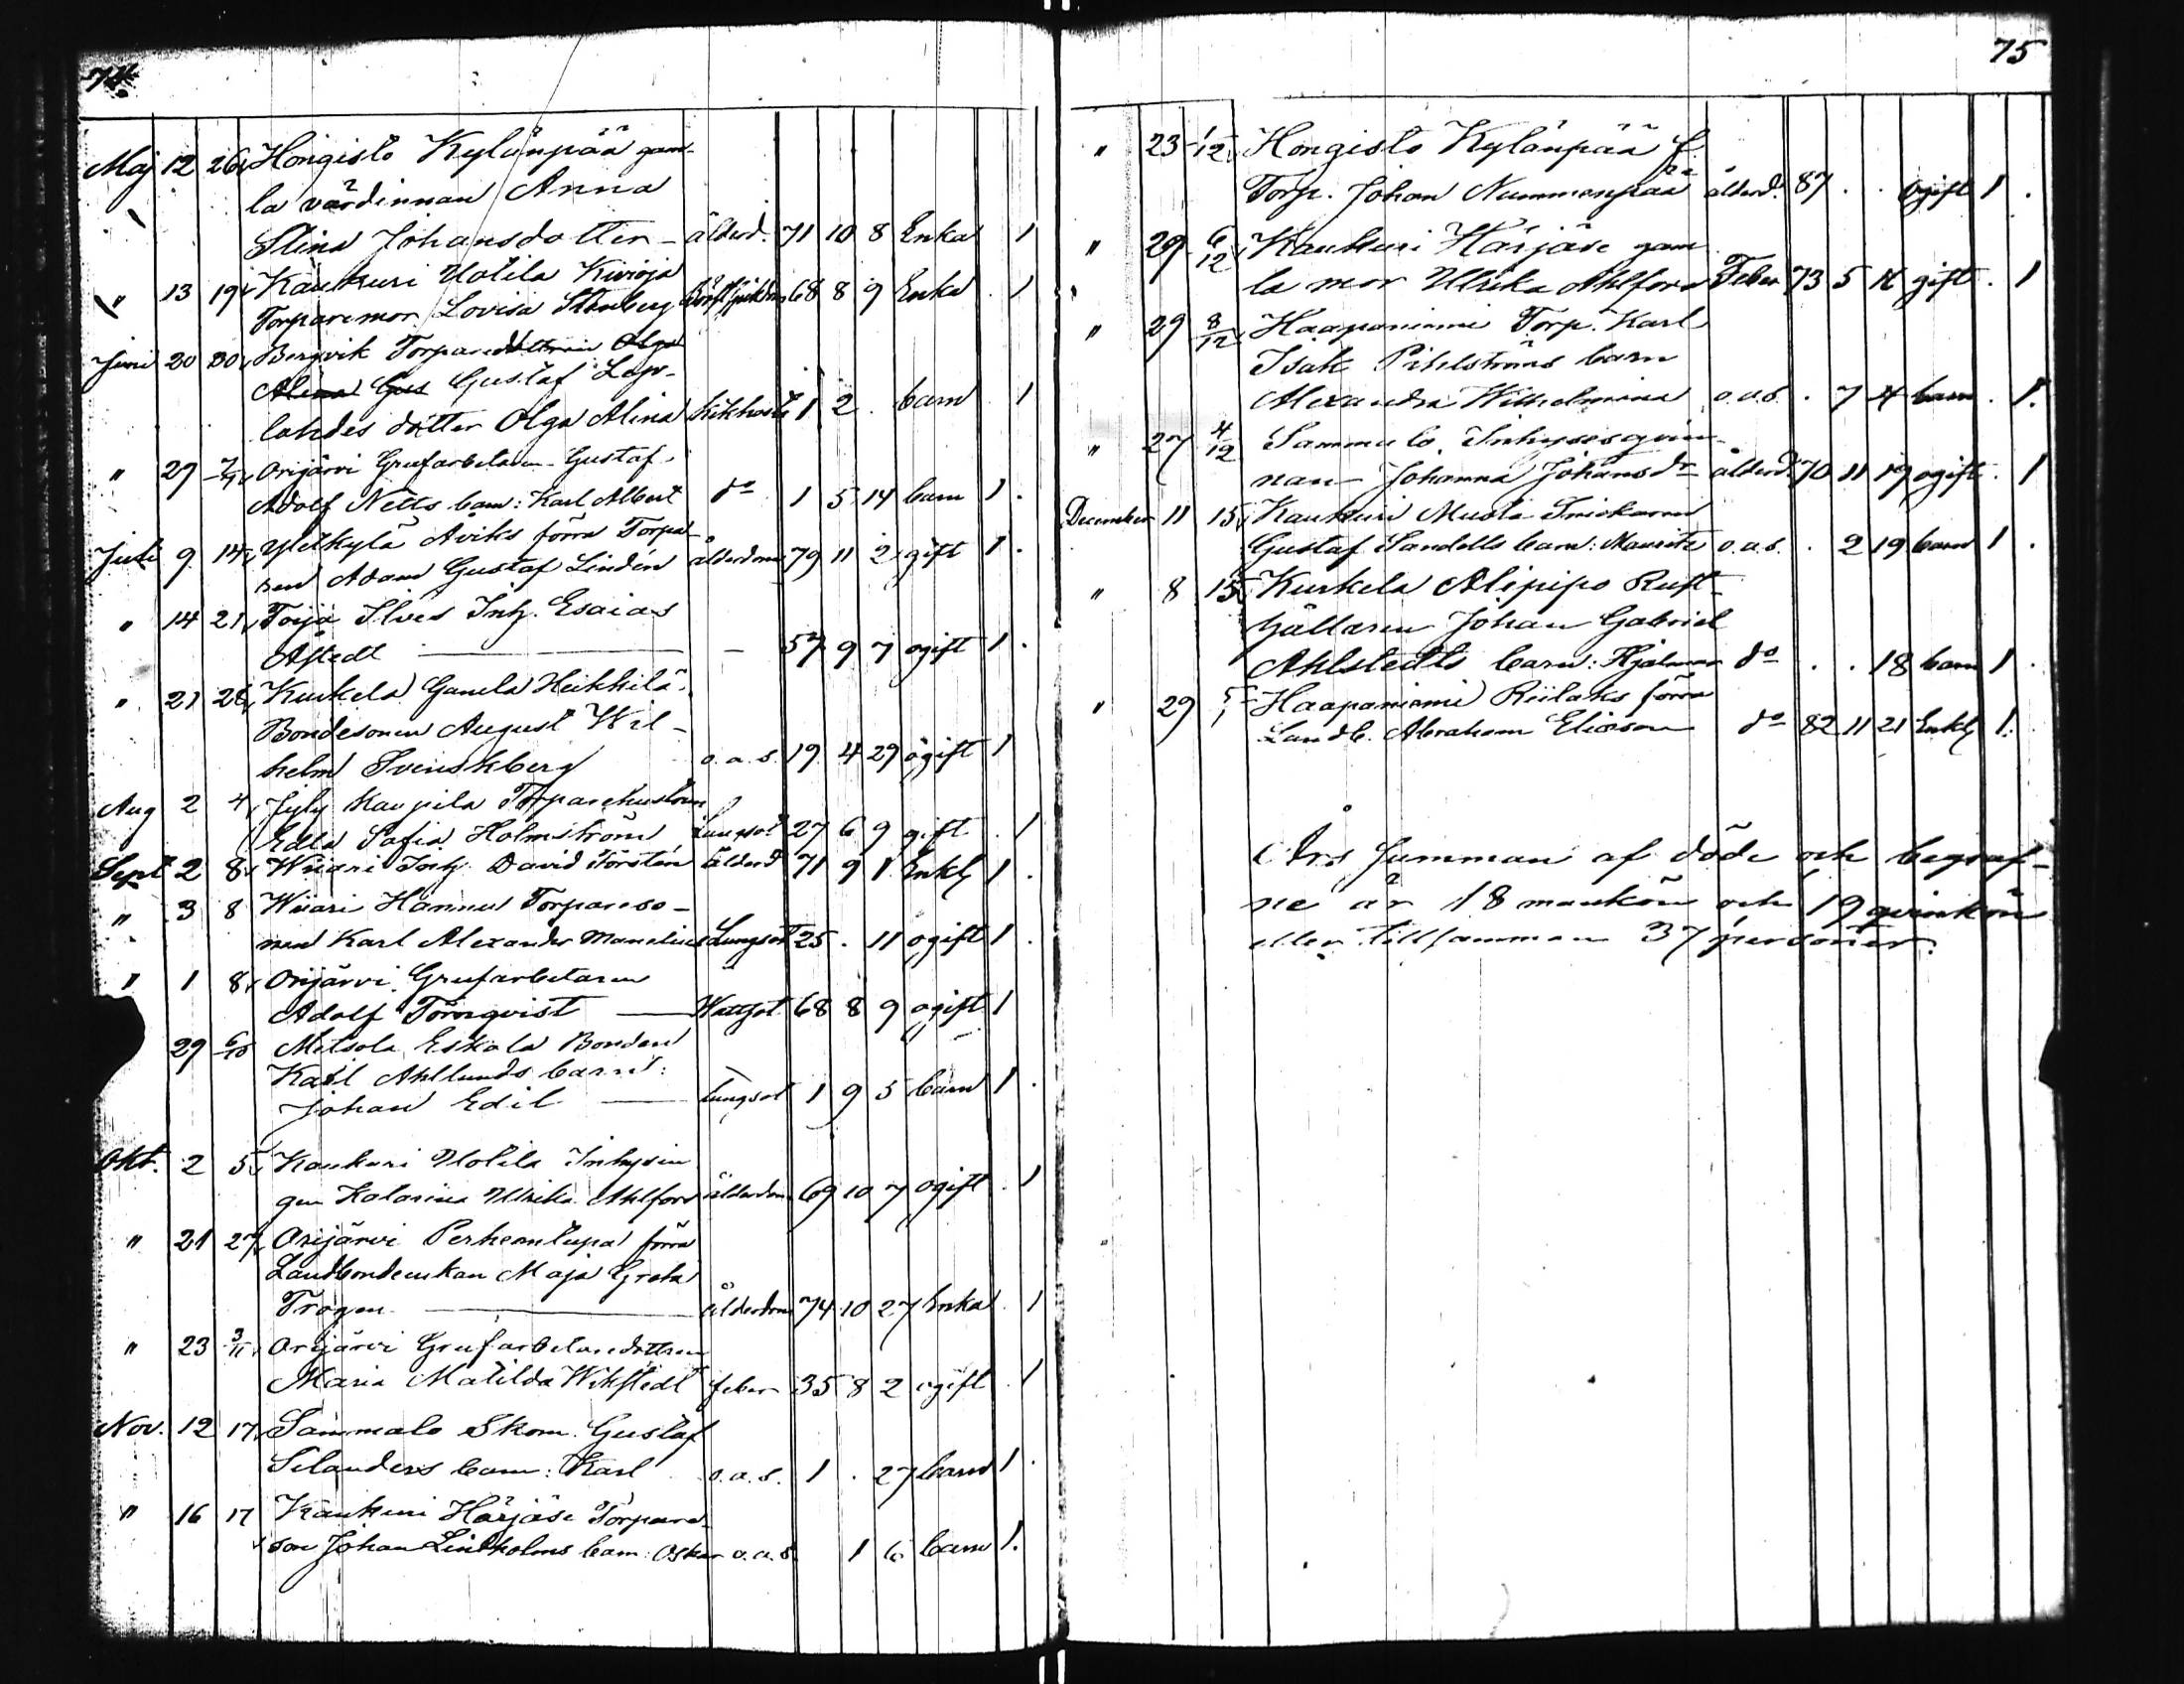 74.
Maj 12 26 Hongisto Kylänpää gam-
la värdinnan Anna
Stina Johansdotter - ålderd. 71 10 8 Enka 1
" 13 19 Kaukuri Uotila Kivioja
Torparemor Lovisa Stenberg Bröstsjukdom 68 8 9 Enka 1
Juni 20 20 Bergvik Torparedottren Olga
Alina Gus Gustaf Lep-
lahdes dotter Olga Alina Kikhosta 1 2 . barn 1
" 27 Orijärvi Grufarbetaren Gustaf
Adolf Netts barn: Karl Albert do 1 5 14 barn 1.
Juli 9 14 Yliskylä Åviks förra Torpa-
ren Adam Gustaf Lindén ålderdom 79 11 2 gift 1.
" 14 21 Toija Ilves Inh. Esaias
Åstedt - 57 9 7 ogift 1.
" 21 28 Kurkela Gamla Heikkilä
Bondesonen August Wil-
helm Svenskberg o.a.s. 19 4 29 ogift 1
Aug 2 4 Jyly Kaupila Torparehustrun
Edla Sofia Holmström Lungsot 27 6 9 gift . 1
Sept 2 8 Wiiari Inh. David Törsten ålderd 71 9 1 Enkl 1.
" 3 8 Wiiari Hannus Torpareso-
nen Karl Alexander Manelius Lungsot 25 . 11 ogift 1.
" 1 8 Orijärvi Grufarbetaren
Adolf Törnqvist Wattsot 68 8 9 ogift 1
29 6/10 Metsola Eskola Bonden
Karl Ahllunds barn:
Johan Edil Lungsot 1 9 5 barn 1.
Okt. 2 5 Kaukuri Uotila Inhysin
gen Katarina Ulrika Ahlfors ålderdom 69 10 7 ogift . 1
" 21 27 Orijärvi Perheentupa förra
Landbondenkan Maja Greta
Trogen ålderdom 74 10 27 Enka 1
" 23 3/11 Orijärvi Grufarbetaredottren
Maria Matilda Wikstedt feber 35 8 2 ogift . 1
Nov. 12 17 Sammalo Skom. Gustaf
Selanders barn: Karl o.a.s. 1 . 27 barn 1.
" 16 17 Kaukuri Härjäse Torpare-
son Johan Lindholms barn: Oskar o.a.s. 1 6 barn 1.
75
" 23 1/12 Hongisto Kylänpää f.
Torp. Johan Nummenpää ålderd. 87 . . ogift 1.
" 29 6/12 Kaukuri Härjäse gam
la mor Ulrika Ahlfors Feber 73 5 16 gift . 1
" 29 8/12 Haapaniemi Torp. Karl
Isak Pihlströms barn
Alexandra Wilhelmina o.a.s. . 7 4 barn . 1.
" 27 4/12 Sammalo Inhysesqvin-
nan Johanna Johansdr ålderd. 70 11 19 ogift . 1
December 11 15 Kaukuri Musta Snickaren
Gustaf Sandells barn: Mauritz o.a.s. . 2 19 barn 1.
" 8 15 Kurkela Alipipo Rust-
hållaren Johan Gabriel
Ahlstedts barn: Hjalmar do . . 18 barn 1.
" 29 5/1 Haapaniemi Riilaks förra
Landb. Abraham Eliasson do 82 11 21 Enkl 1.
Års summan af döde och begraf-
ne är 18 mankön och 19 qvinkön
eller tillsammans 37 personer.